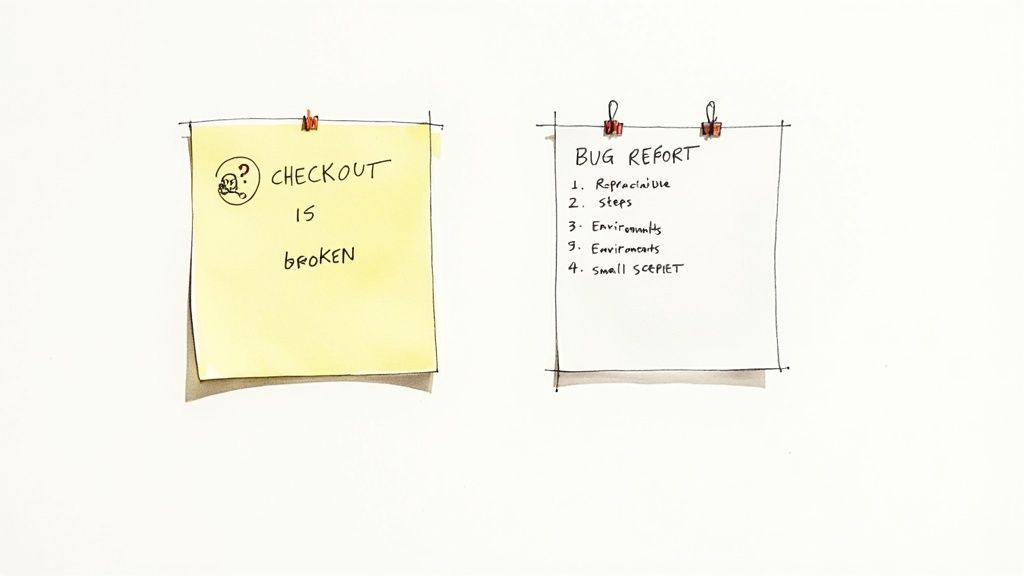 ?
CHECKOUT
IS
BROKEN
BUG REFORT
1. Repraciaivle
2. Steps
3. Environmnts
3. Enviroments
4. Small SCEPIET